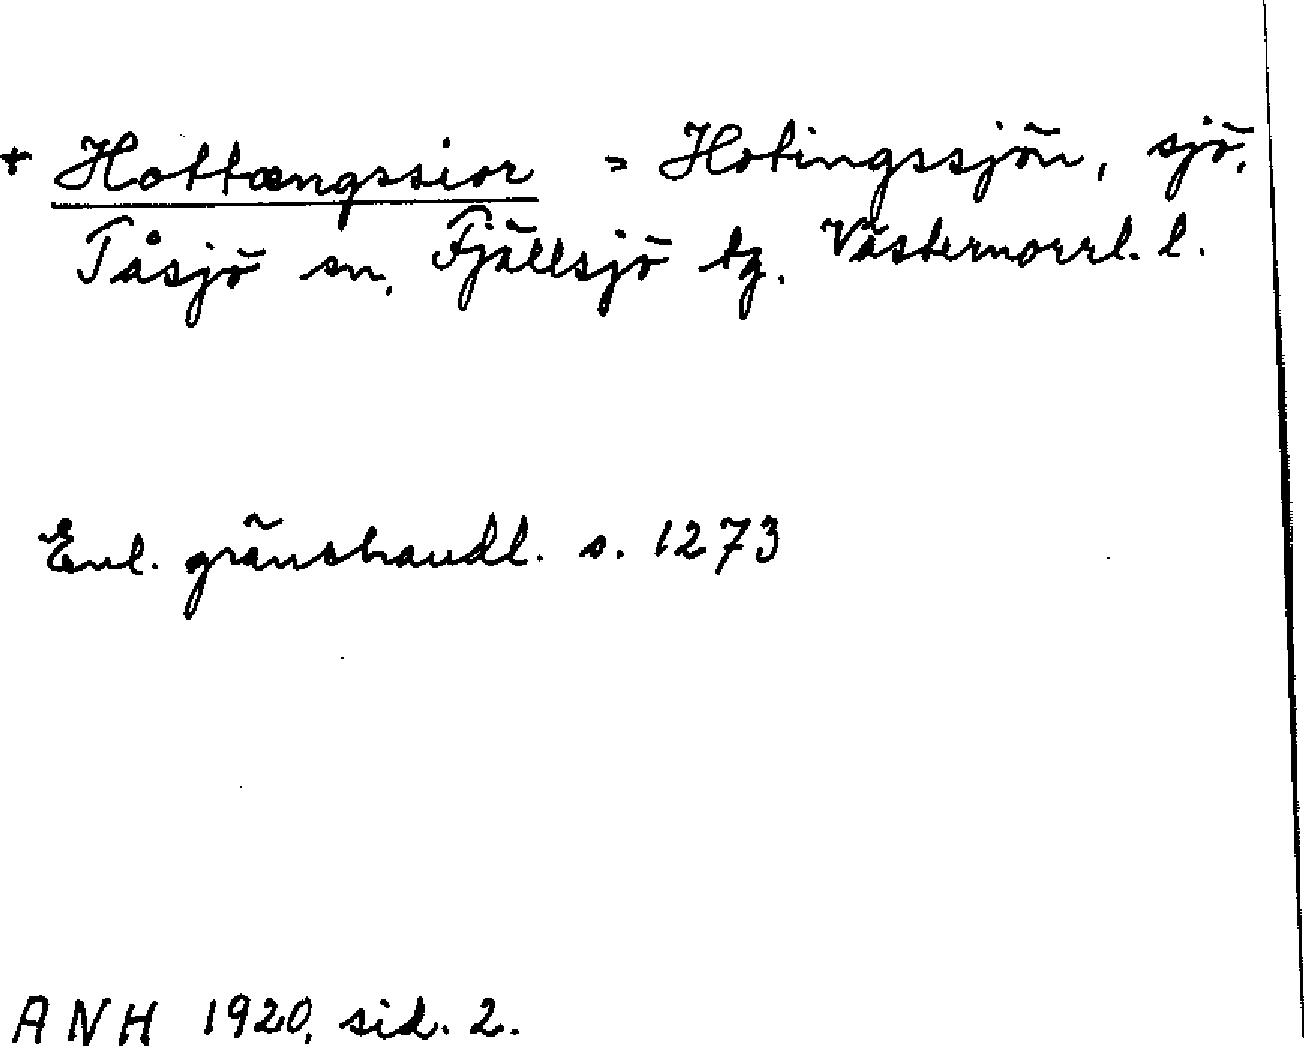 + Hottængssior = Hotingssjön, sjö,
Tåsjö sn, Fjällsjö tg. Västernorrl. l.
Enl. gränshandl. s. 1273
ANH 1920, sid. 2.